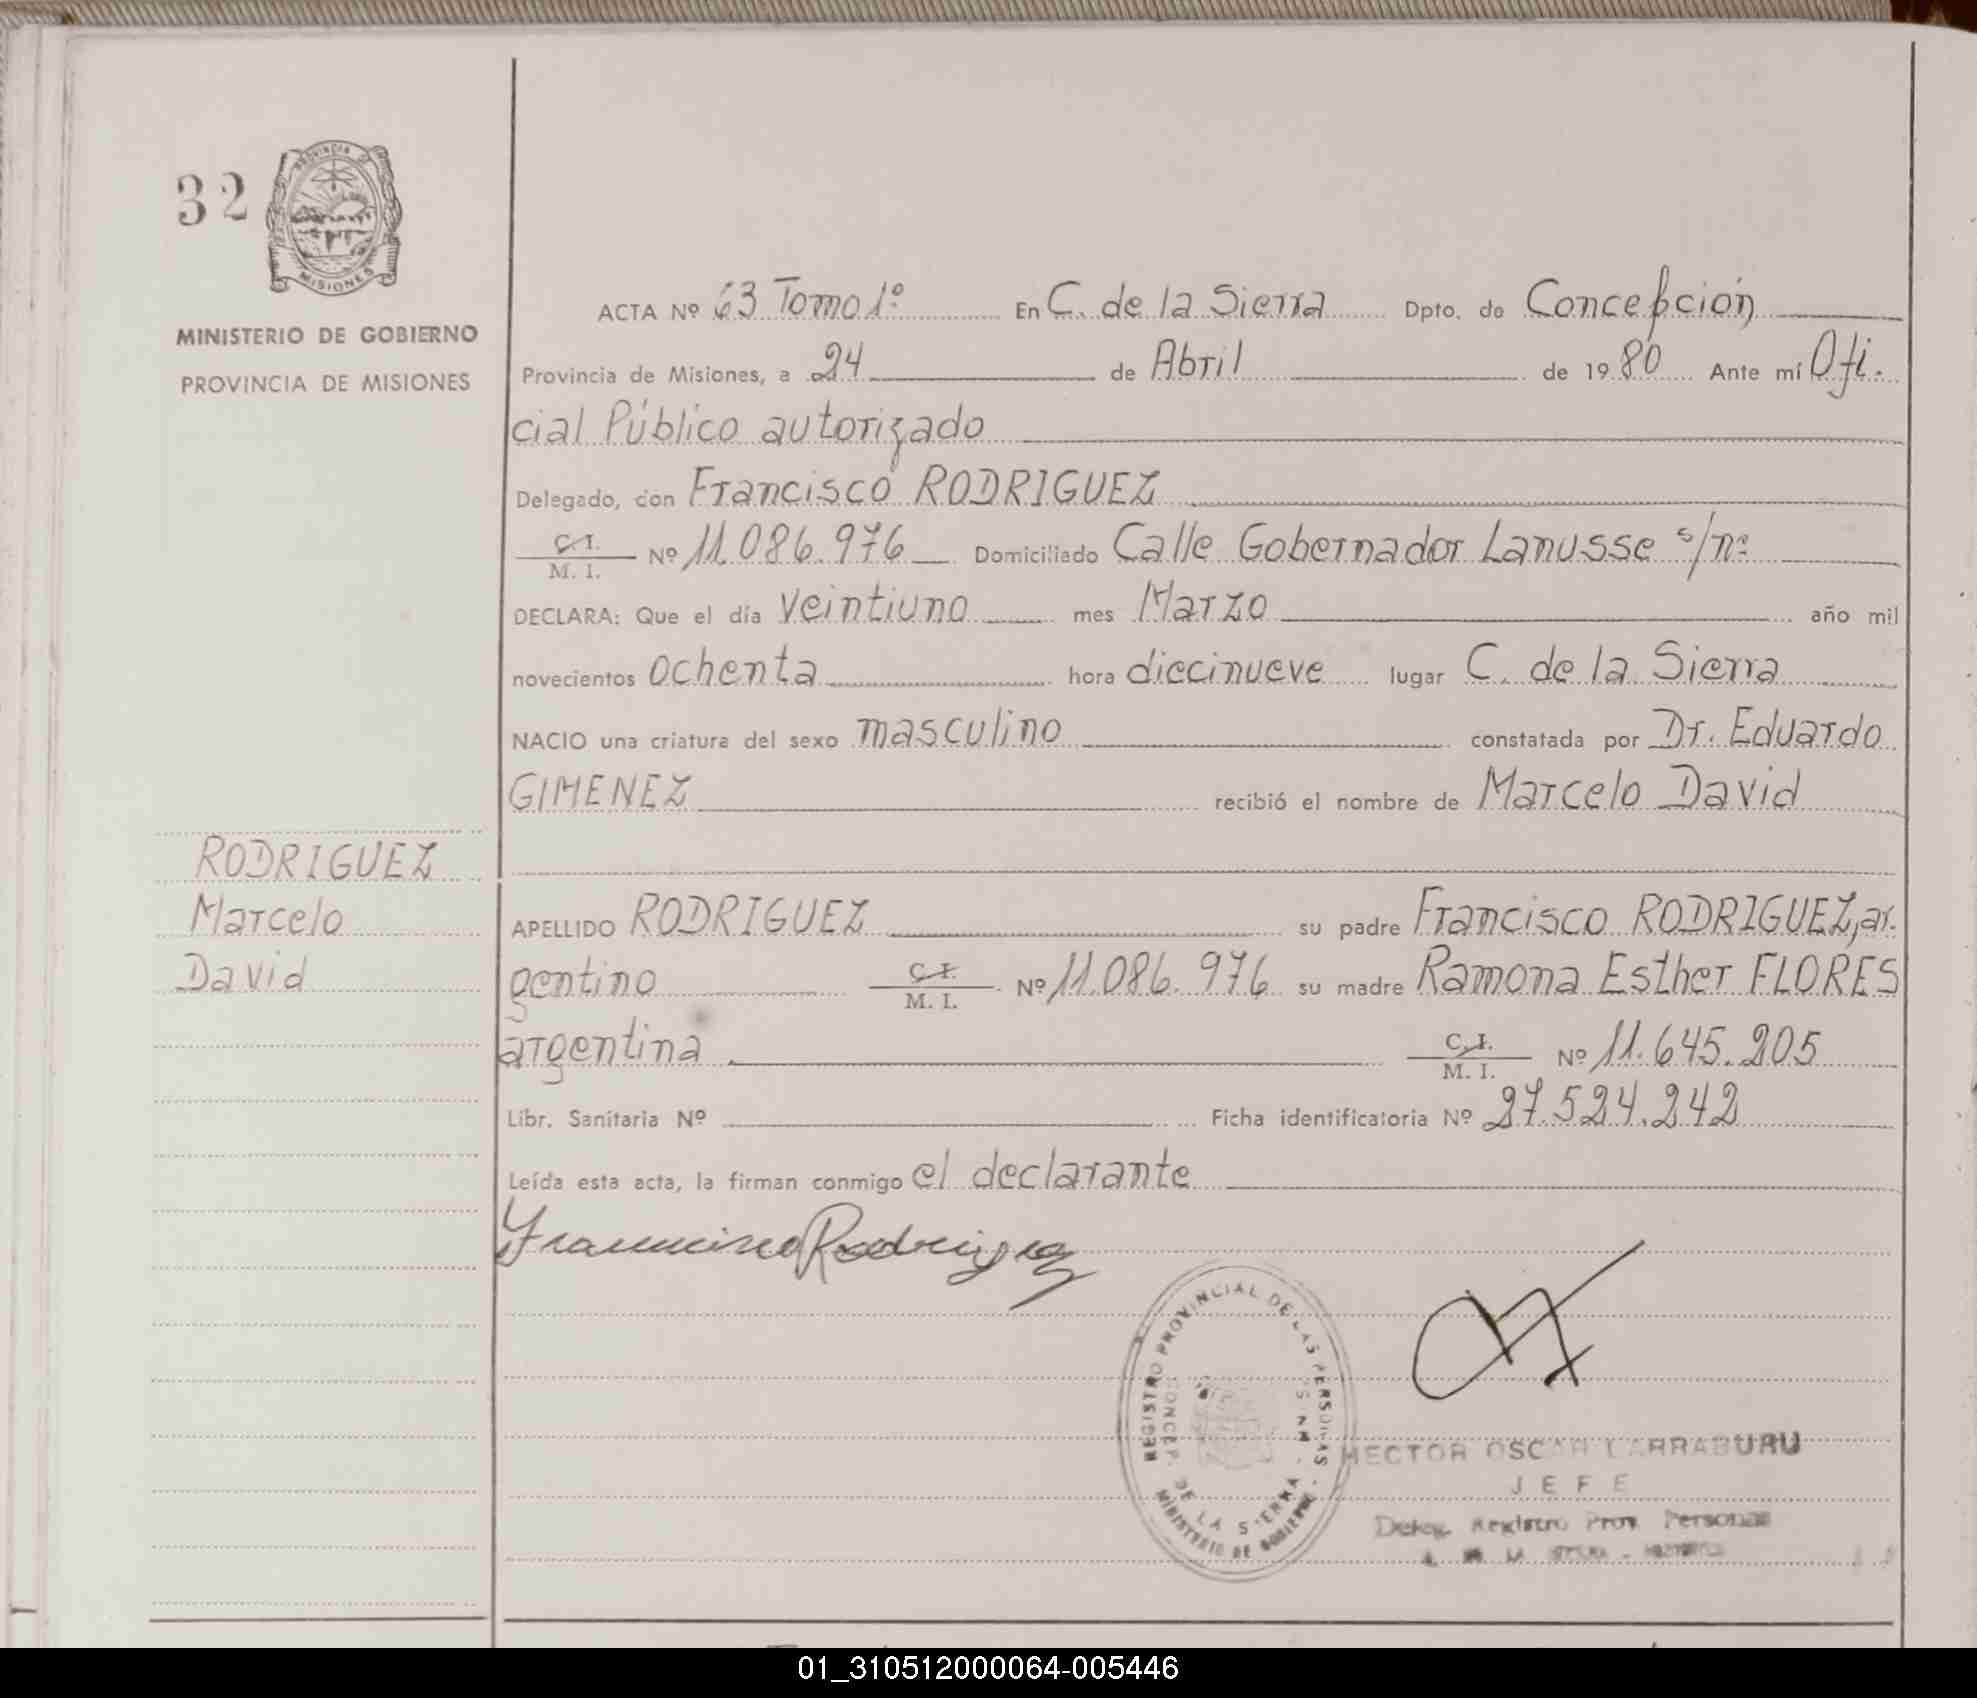 32
PROVINCIA DE
MISIONES
MINISTERIO DE GOBIERNO
PROVINCIA DE MISIONES
RODRIGUEZ
Marcelo
David
ACTA Nº 63 Tomo 1º En C. de la Sierra Dpto. de Concepción
Provincia de Misiones, a 24 de Abril de 1980 Ante mí Ofi.
cial Público autorizado
Delegado, con Francisco RODRIGUEZ
C. I.
M. I. Nº 11.086.976 Domiciliado Calle Gobernador Lanusse s/nº
DECLARA: Que el día veintiuno mes Marzo año mil
novecientos ochenta hora diecinueve lugar C. de la Sierra
NACIO una criatura del sexo masculino constatada por Dr. Eduardo
GIMENEZ recibió el nombre de Marcelo David
APELLIDO RODRIGUEZ su padre Francisco RODRIGUEZ, ar.
gentino C. I.
M. I. Nº 11.086.976 su madre Ramona Esther FLORES
argentina C. I.
M. I. Nº 11.645.205
Libr. Sanitaria Nº Ficha identificatoria Nº 27.524.242
Leída esta acta, la firman conmigo el declarante
Francisco Rodriguez
REGISTRO PROVINCIAL DE LAS PERSONAS
CONCEP. DE LA SIERRA
MINISTERIO DE GOBIERNO
HECTOR OSCAR LARRABURU
JEFE
Deleg. Registro Prov. Personas
01_310512000064-005446